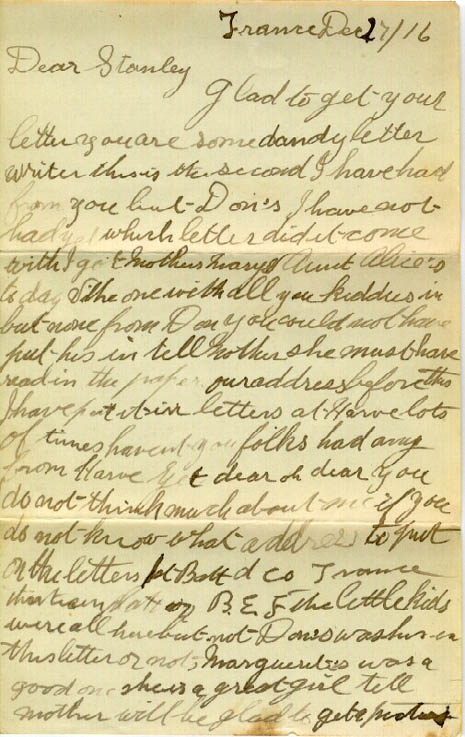 France Dec 27/16
Dear Stanley
Glad to get your
letter you are some dandy letter
writer this is the second I have had
from you but Don's I have not
had yet which letter did it come
with I got Mothers Marys Aunt Alice's
to day & the one with all you kiddies in
but none from Don you could not have
put his in tell Mother she must have
read in the paper our address before this
I have put it in letters at Harve lots
of times havent you folks had any
from Harve yet dear oh dear you
do not think much about me if you
do not know what address to put
on the letters 1st Batt d co France
B.E.F the little kids
were all here but not Don's was his in
this letter or not, Marguerite's was a
good one she is a great girl tell
mother will be glad to get